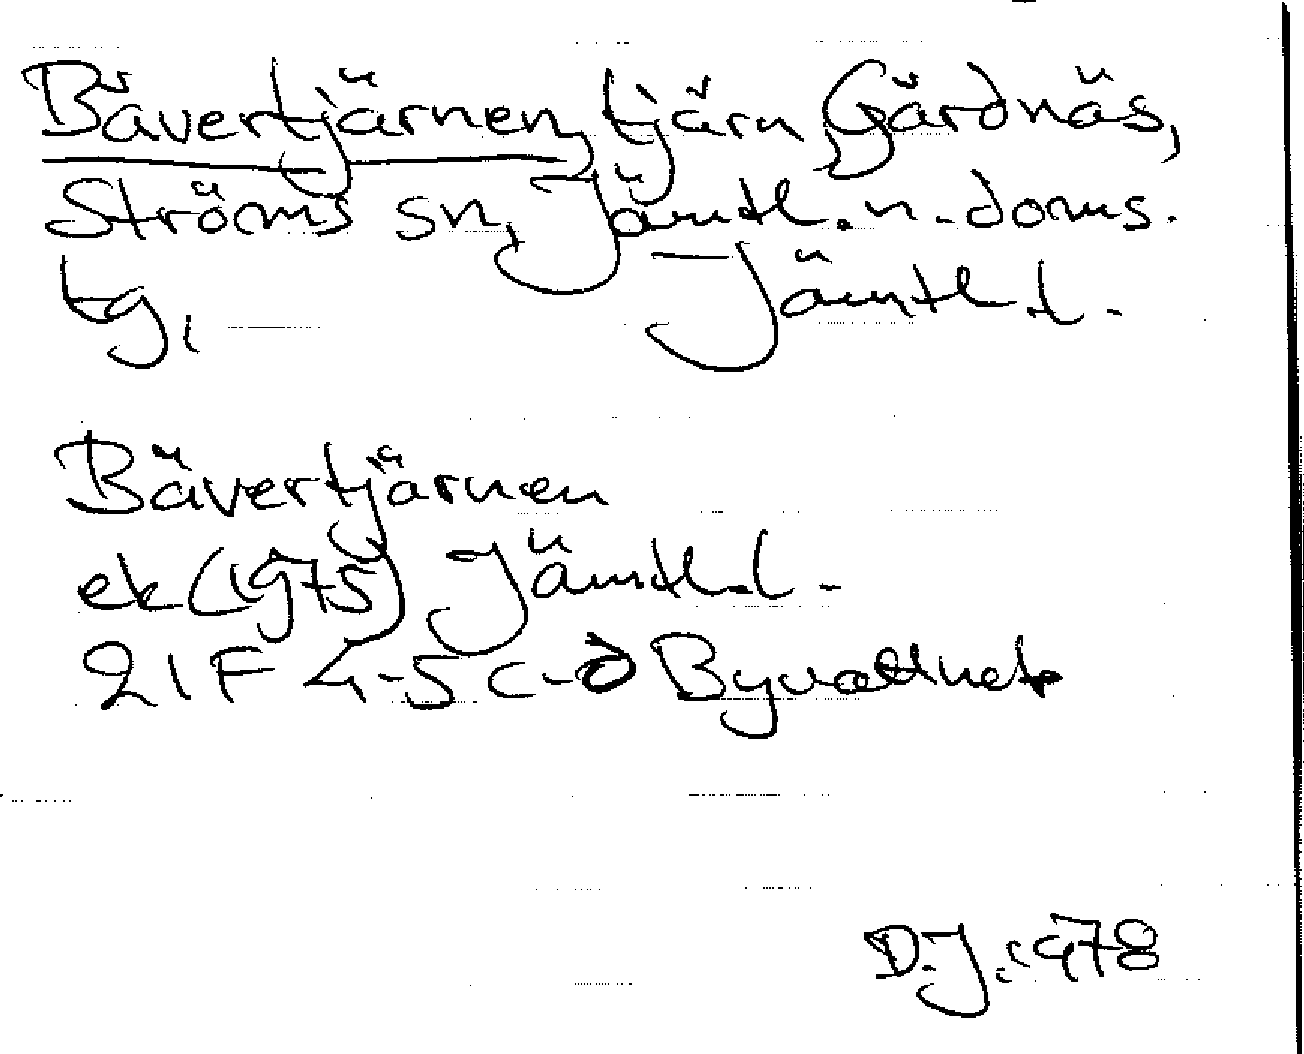 Bävertjärnen, tjärn Gärdnäs,
Ströms sn, Jämtl. n. doms.
tg, Jämtl. l.
Bävertjärnen
ek (1975) Jämtl. l.
21F 4-5 c-d Byvattnet
D.J. 1978